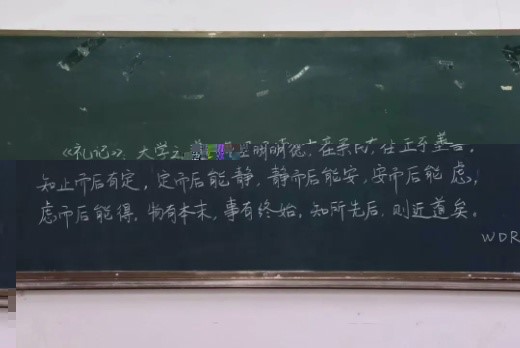 《礼记》：大学之 明明德，在亲民，在止于至善。
知止而后有定，定而后能静，静而后能安，安而后能虑，
虑而后能得。物有本末，事有终始，知所先后，则近道矣。
WDR